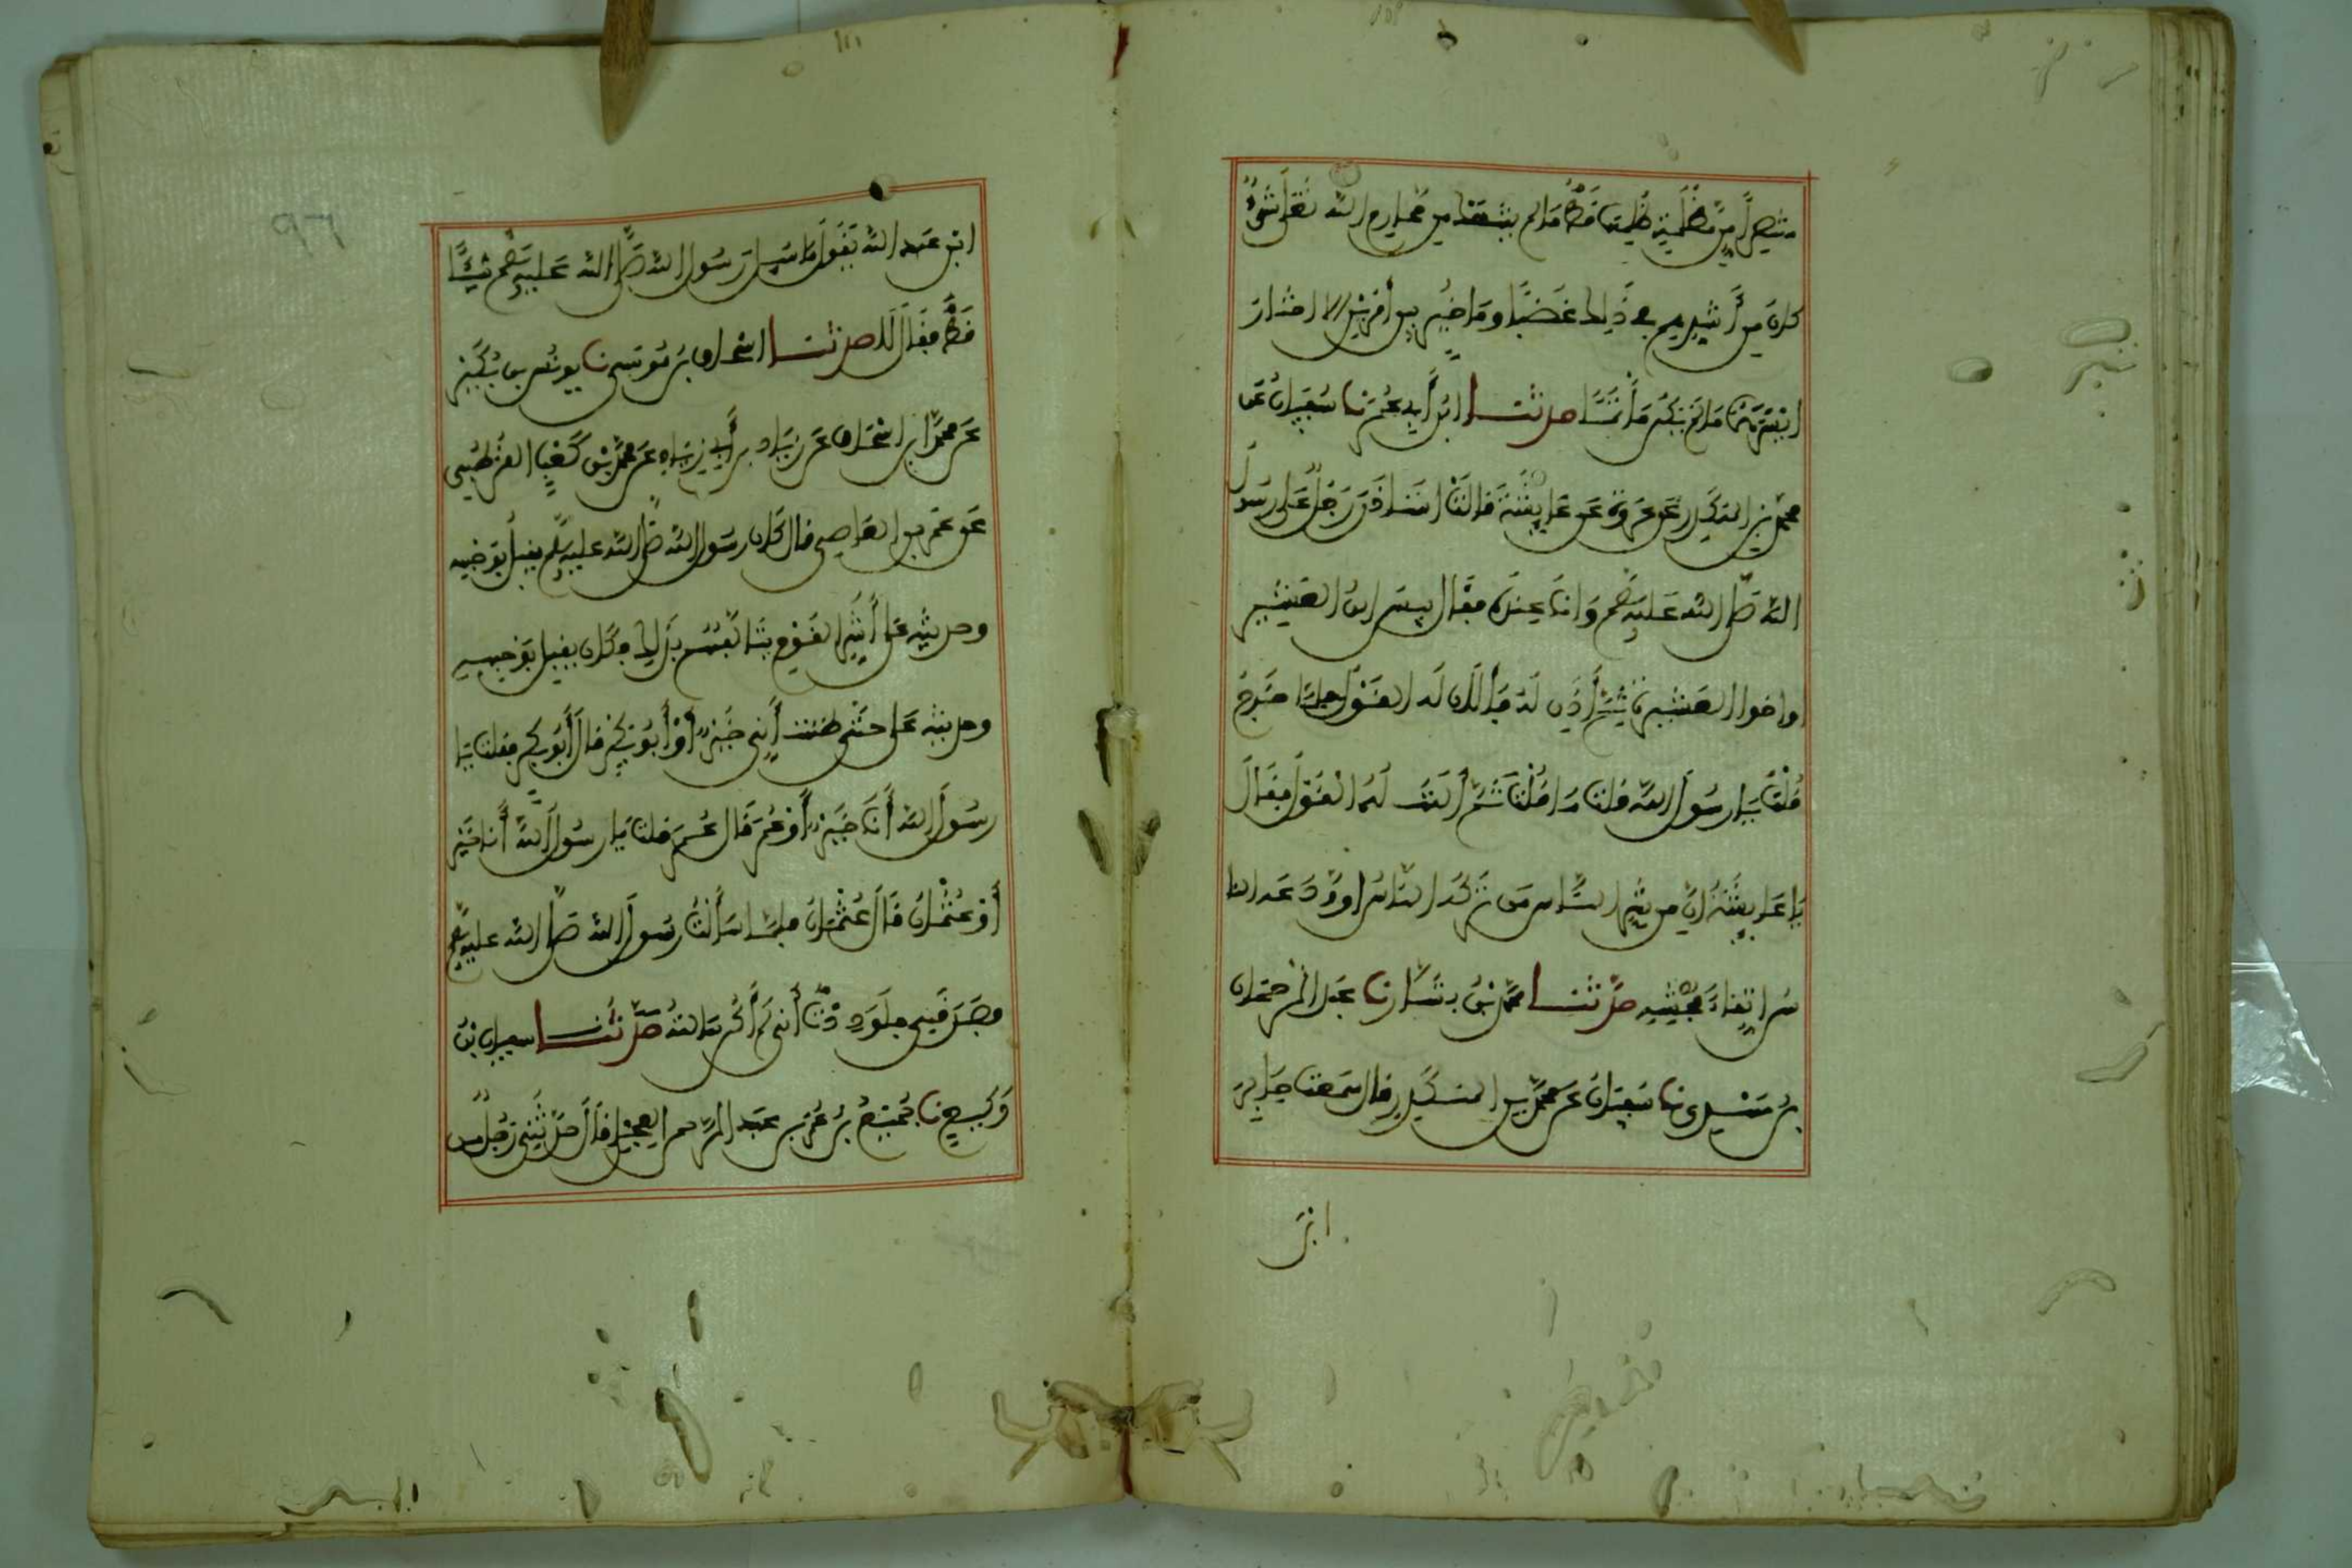 منتصرا من مظلمة ظلمها قط ما لم ينتهك من محارم الله تعلى شيء
كان من أشدهم في ذلك غضبا وما خير بين أمرين الا اختار
ايسرهما ما لم يكن مأثما حدثنا ابن أبي عمر نا سفيان عن
محمد بن المنكدر عن عروة عن عايشة قالت استاذن رجل على رسول
الله صلى الله عليه وسلم وانا عنده فقال بيس ابن العشير
او اخوا العشيرة ثم أذن له فالان له القول فلما خرج
قلت يا رسول الله قلت ما قلت ثم ألنت له القول فقال
يا عايشة ان من شر الناس من تركه الناس او ودعه النا
س اتقاء فحشه حدثنا محمد بن بشار نا عبد الرحمان
بن مهدي نا سفيان عن محمد بن المنكدر قال سمعت جابر
ابن
ابن عبد الله يقول ما سيل رسول الله صلى الله عليه وسلم شيئا
قط فقال لا حدثنا اسحاق بن موسى نا يونس بن بكير
عن محمد ابن اسحاق عن زياد بن أبي زياد عن محمد بن كعب القرظي
عن عمر بن العاصي قال كان رسول الله صلى الله عليه وسلم يقبل بوجهه
وحديثه على أشر القوم يتألفهم بذلك فكان يقبل بوجهه
وحديثه على حتى ظننت أني خير أو أبو بكر قال أبو بكر فقلت يا
رسول الله أنا خير أو عمر قال عمر فقلت يا رسول الله أنا خير
أو عثمان قال عثمان فلما سألت رسول الله صلى الله عليه وسلم
فصدقني فلوددت أني لم أكن سالته حدثنا سفيان بن
وكيع نا جميع بن عمر بن عبد الرحمن العجلي قال حدثني رجل من